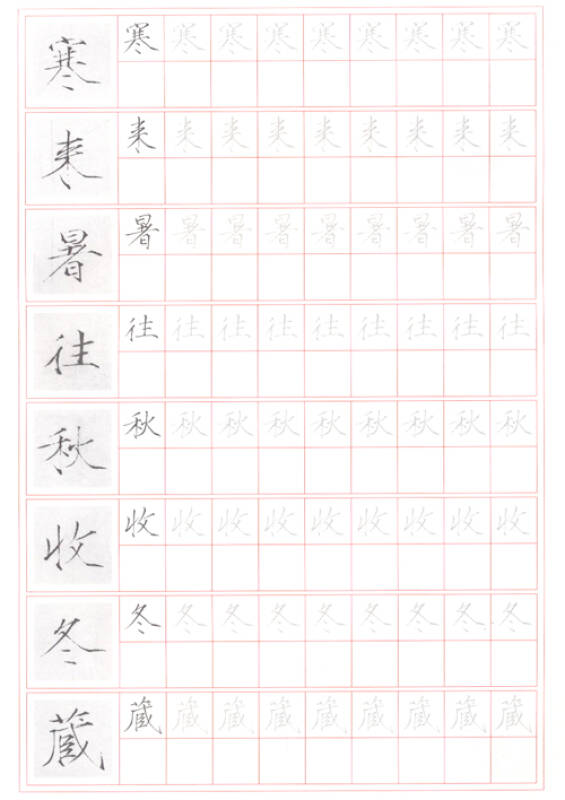 寒 寒 寒 寒 寒 寒 寒 寒 寒 寒
来 来 来 来 来 来 来 来 来 来
暑 暑 暑 暑 暑 暑 暑 暑 暑 暑
往 往 往 往 往 往 往 往 往 往
秋 秋 秋 秋 秋 秋 秋 秋 秋 秋
收 收 收 收 收 收 收 收 收 收
冬 冬 冬 冬 冬 冬 冬 冬 冬 冬
藏 藏 藏 藏 藏 藏 藏 藏 藏 藏